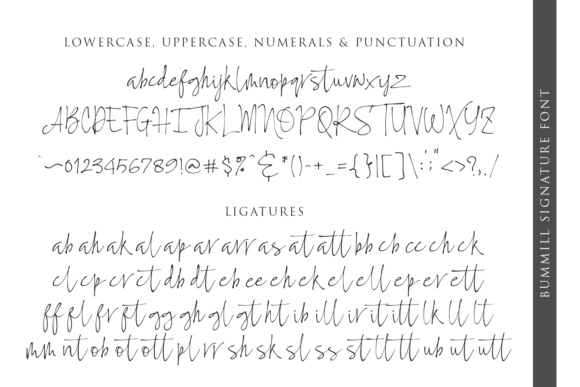 LOWERCASE, UPPERCASE, NUMERALS & PUNCTUATION
abcdefghijklmnopqrstuvwxyz
ABCDEFGHIJKLMNOPQRSTUVWXYZ
`~0123456789!@#$%^&*()-+_={}|[]\:;"<>?,./
LIGATURES
ab ah ak al ap ar arr as at att bb cb cc ch ck
cl cp cr ct db dt eb ee ch ek el ell ep er ett
ff fl fr ft gg gh gl gt ht ib ill ir it itt lk ll lt
mm nt ob ot ott pl rr sh sk sl ss st tl tt ub ut utt
BUMMILL SIGNATURE FONT